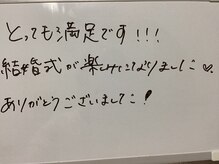 とっても満足です!!!
結婚式が楽しみになりました♡
ありがとうございました!